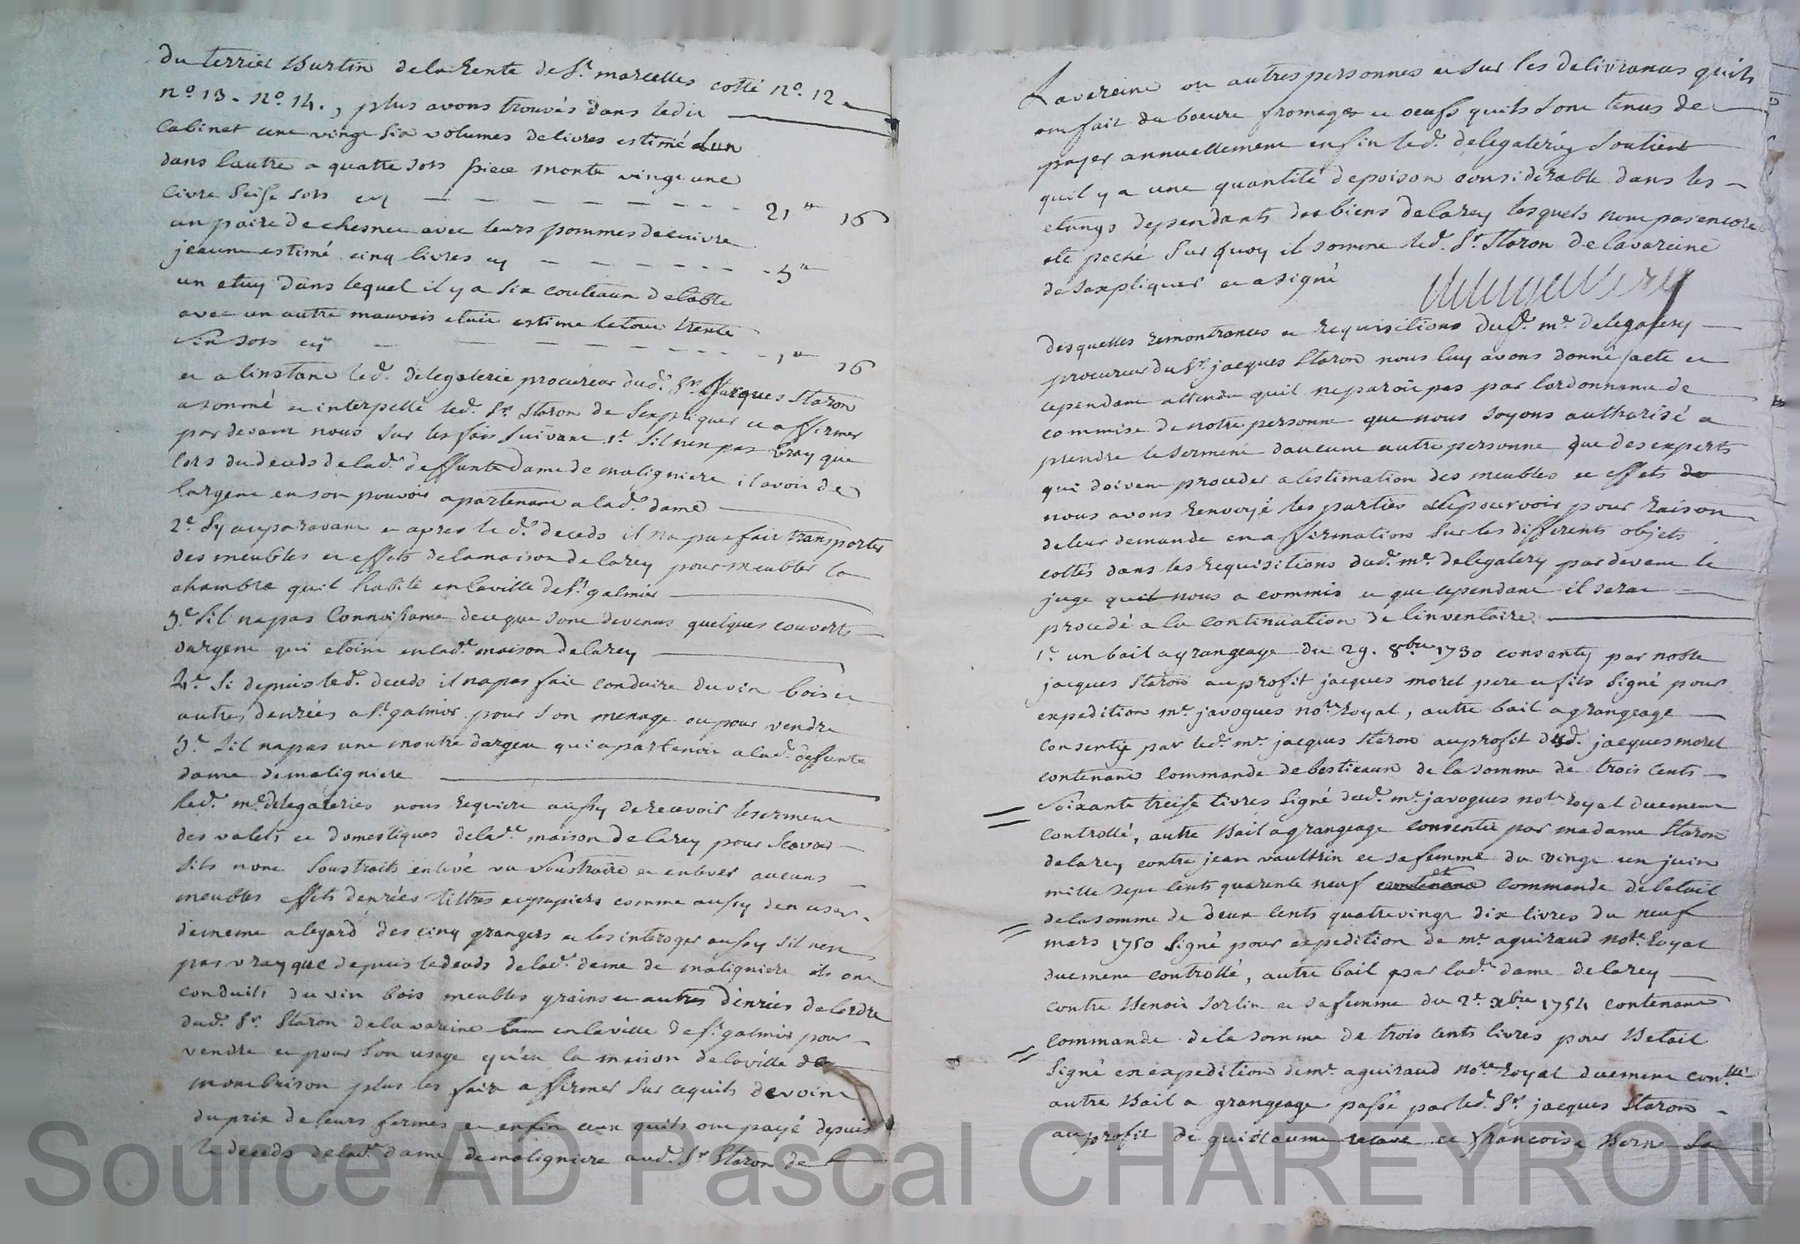 du terrier Burtin de la Rente de St marcelles cotté no. 12
no. 13. no. 14., plus avons trouvés dans ledit
Cabinet une vingt six volumes de livres estimé Lun
dans lautre a quatre sols piece monte vingt une
livre seise sols cy 21 16
un paire de chesnes avec leurs pommes de cuivre
jeaune estimé cinq livres cy 5
un etuy dans lequel il y a six couteaux de table
avec un autre mauvais etuis estimé le tout trente
six sols cy 1 16
et a linstant led. delegalerie procureur dud. Sr jacques Staron
a sommé et interpellé led. Sr Staron de sexpliquer et affirmer
par devant nous sur les fais suivant 1e. Sil nen pas vray que
lors du deceds de lad. deffunte dame de maligniere il avoit de
largent en son pouvoir apartenant a lad. dame
2e. Sy auparavant et apres led. deceds il na pas fait transporter
des meubles et effets de la maison de larey pour meubler la
chambre quil habite en la ville de St galmier
3e. Sil na pas Connoissance de ce que sont devenus quelques couverts
dargent qui etoint en lad. maison de larey
4e. Si depuis led. deceds il na pas fait conduire du vin bois et
autres denrées a St galmier pour son menage ou pour vendre
5e. Sil na pas une montre dargent qui apartenoit a lad. deffunte
dame de maligniere
led. me. delegaleries nous requiert aussy de recevoir le serment
des valets et domestiques de lad. maison de larey pour scavoir
sils nont soustraits enlevé vu soustraire et enlever aucuns
meubles effets denrées tittres et papiers comme aussy den user
de meme a legard des cinq grangers et les interoger aussy sil nest
pas vray que depuis le deceds de lad. dame de maligniere ils ont
conduits du vin bois meubles grains et autres denrées de lordre
dud. Sr Staron de la vareine en la ville de St galmier pour
vendre et pour son usage qu'en la maison de la ville de
montbrison plus les faire affirmer sur ce quils devoint
du prix de leurs fermes et enfin ceux quils ont payé depuis
le deceds de lad. dame de maligniere aud. Sr Staron de
Lavareine ou autres personnes et sur les delivrances quils
ont fait du beurre fromages et oeufs quils sont tenus de
payer annuellement enfin led. delegalery soutient
quil y a une quantité de poison considerable dans les
etangs dependants des biens de larey lesquels nont pas encore
ete peché Sur quoy il somme led. Sr Staron de lavareine
de sexpliquer et a signé
delegallery
desquelles remontrances et requisitions dud. me. delegalery
procureur du Sr jacques Staron nous luy avons donné acte et
cependant attendu quil ne paroit pas par lordonnance de
commise de notre personne que nous soyons authorisé a
prendre le serment daucune autre personne que des experts
qui doivent proceder a lestimation des meubles et effets
nous avons renvoyé les parties a se pourvoir pour raison
de leur demande en affirmations sur les differents objets
cottés dans les requisitions dud. me. delegalery par devant le
juge qui nous a commis et que cependant il sera
procedé a la continuation de linventaire.
1e. un bail a grangeage du 29. 8bre 1730 consenty par noble
jacques Staron au profit jacques morel pere et fils signé pour
expedition me. javogues nore royal, autre bail a grangeage
consenty par led. mr. jacques Staron au profit dud. jacques morel
contenant commande de bestieaux de la somme de trois cents
soixante treise livres signé dud. me. javogues nore royal duement
controllé, autre Bail a grangeage consentie par madame Staron
de larey contre jean vaultrin et sa femme du vingt un juin
mille sept cents quarente neuf et commande de betail
de la somme de deux cents quatrevingt dix livres du neuf
mars 1750 signé pour expedition de me. aguiraud nore royal
duement controllé, autre bail par lad. dame de larey
contre Benoit sorlin et sa femme du 2e. xbre 1754 contenant
commande de la somme de trois cents livres pour Betail
signé en expedition de me. aguiraud nore royal duement conllé
autre Bail a grangeage passé par led. Sr. jacques Staron
au profit de guillaume et francoise Berne sa
Source AD Pascal CHAREYRON